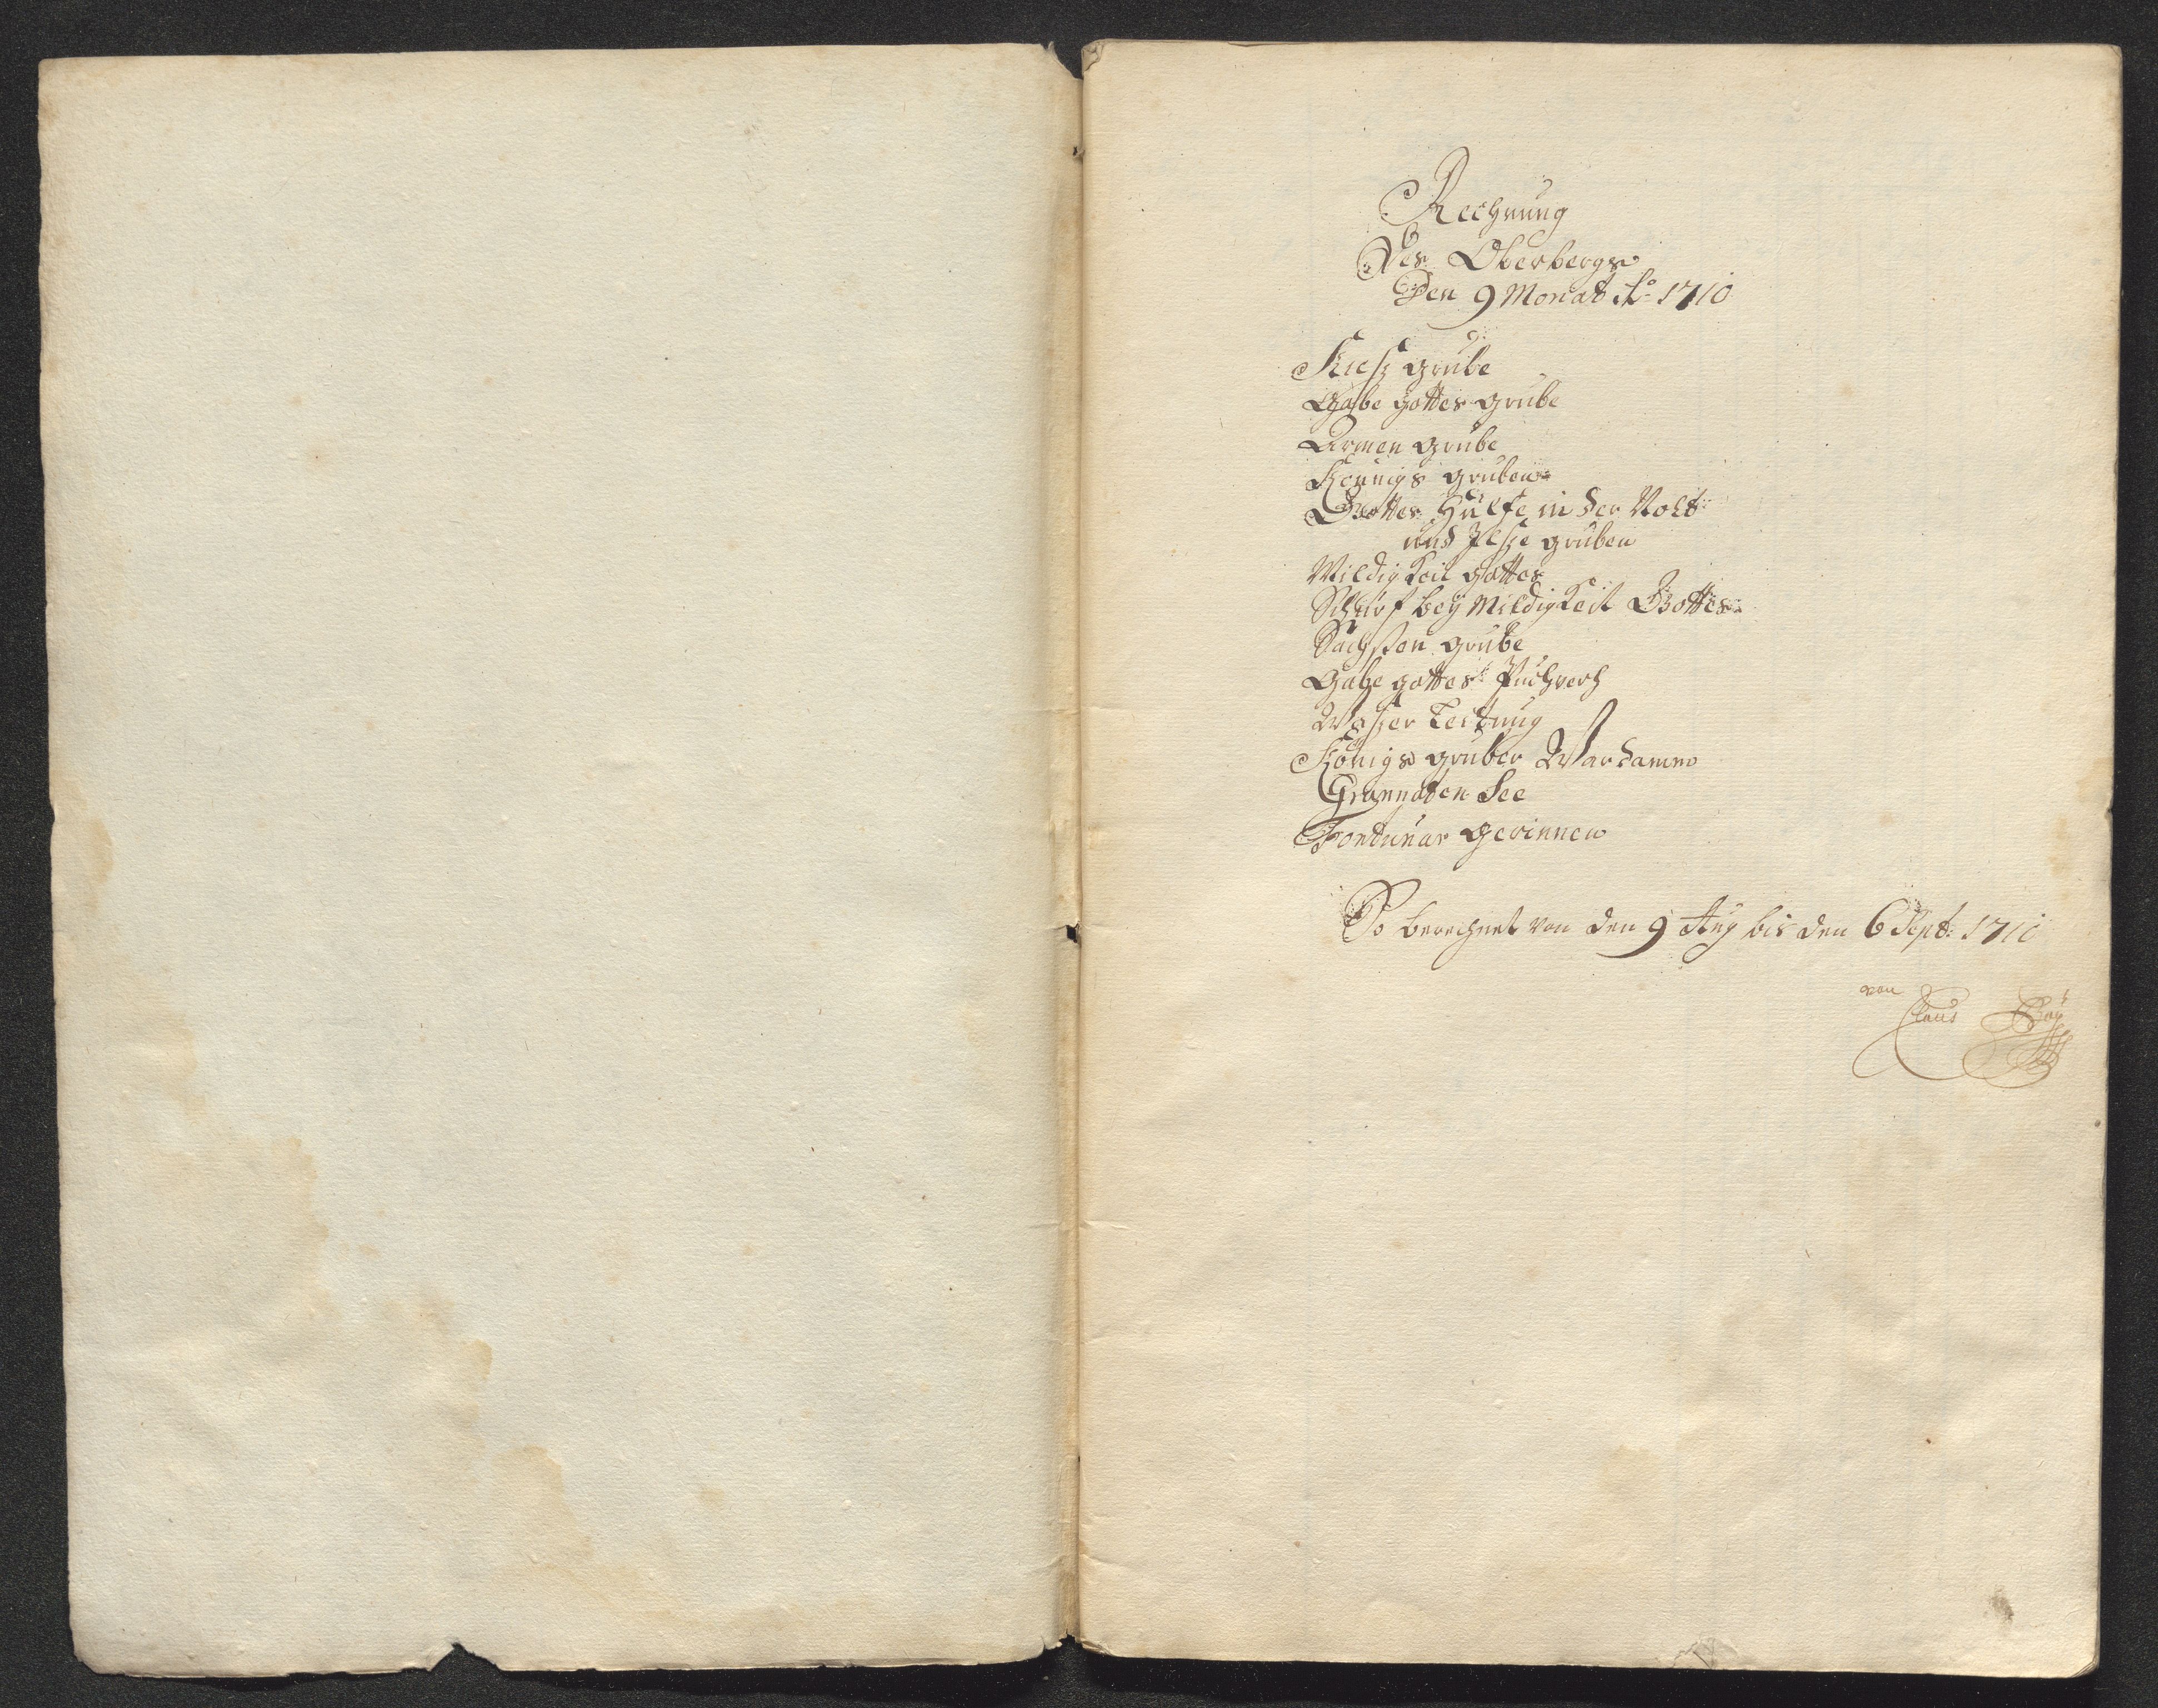 Rechnung
Des Oberbergs
Den 9 Monat Ao 1710
Kiesz grube
Gabe gottes grube
Armen grube
Königs gruben
Gottes Hülfe in der Noht
und grube
Mildigkeit gottes
Schurf beÿ Mildigkeit Gottes
Sachsen grube
Gabe gottes Puchwerch
Waszer Leitung
Königs gruber Wardamm
Grannaten See
Fortunar gerinnen
So berechnet von den 9 Aug bis den 6 Sept: 1710
von
Claus